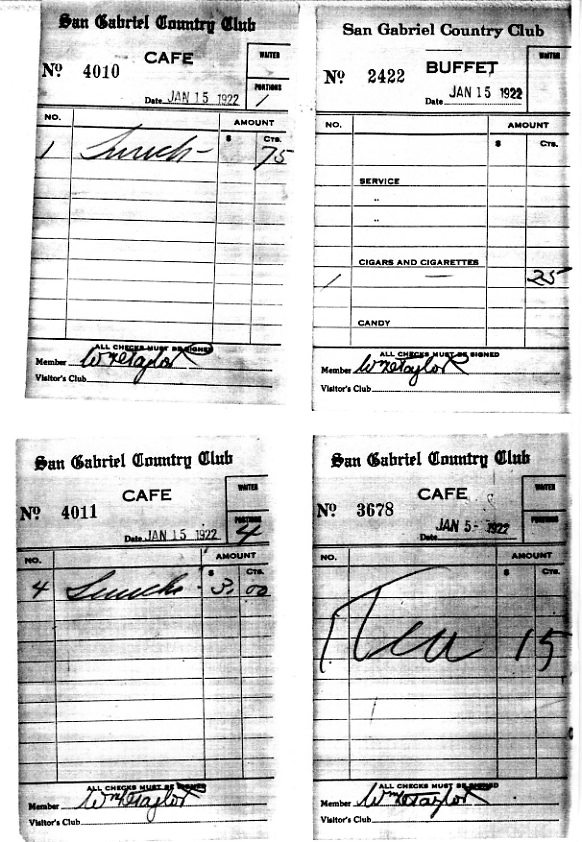 San Gabriel Country Club
CAFE
WAITER
Nº 4010
PORTIONS
1
Date JAN 15 1922
NO.
AMOUNT
$ Cts.
1 Lunch - 75
ALL CHECKS MUST BE SIGNED
Member Wm D Taylor
Visitor's Club
San Gabriel Country Club
BUFFET
WAITER
Nº 2422
Date JAN 15 1922
NO.
AMOUNT
$ Cts.
SERVICE
"
"
CIGARS AND CIGARETTES
1 — 25
CANDY
ALL CHECKS MUST BE SIGNED
Member Wm D Taylor
Visitor's Club
San Gabriel Country Club
CAFE
WAITER
Nº 4011
PORTIONS
4
Date JAN 15 1922
NO.
AMOUNT
$ Cts.
4 Lunch 3.00
ALL CHECKS MUST BE SIGNED
Member Wm D Taylor
Visitor's Club
San Gabriel Country Club
CAFE
WAITER
Nº 3678
PORTIONS
Date JAN 5 - 1922
NO.
AMOUNT
$ Cts.
Tea 15
ALL CHECKS MUST BE SIGNED
Member Wm D Taylor
Visitor's Club